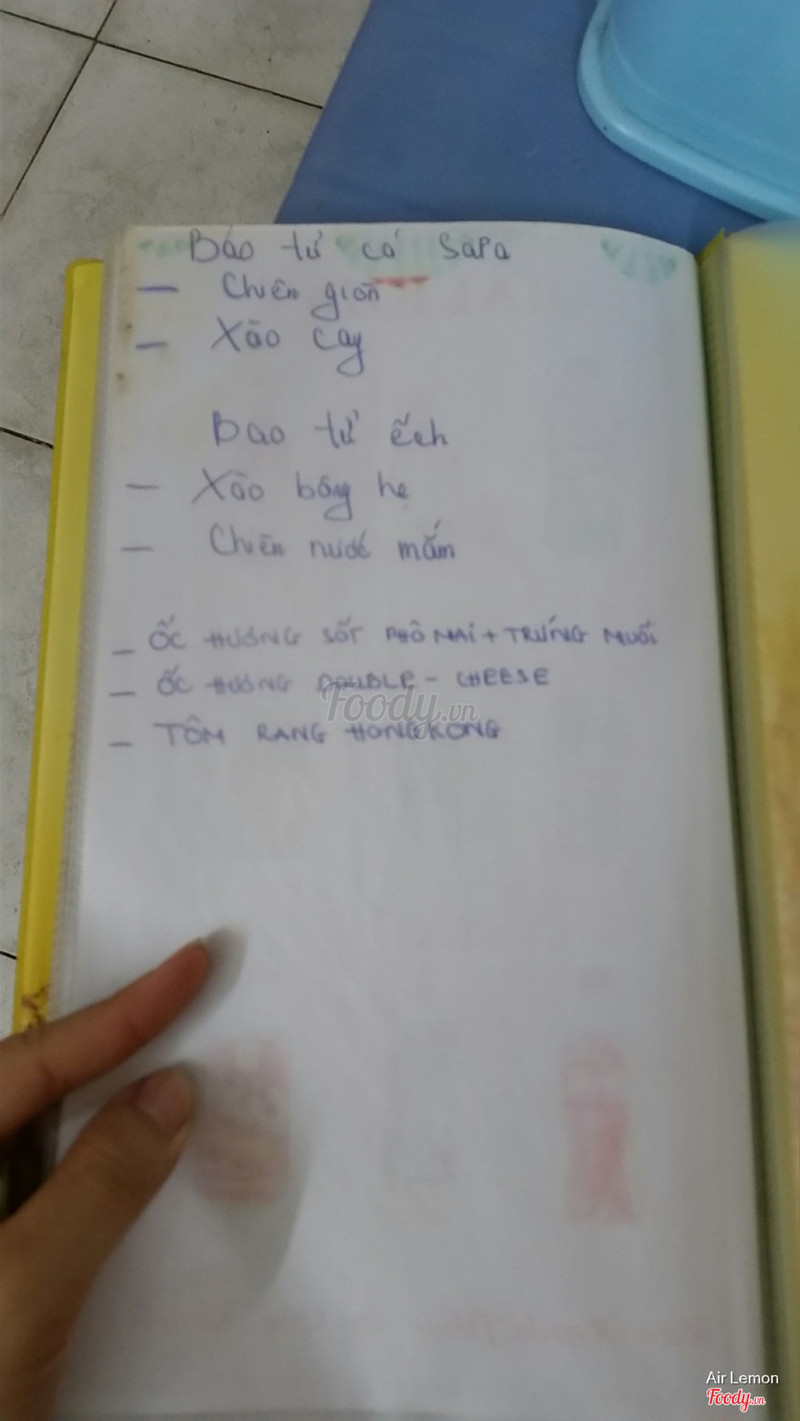 Bao tử cá Sapa
— Chiên giòn
— Xào cay
Bao tử ếch
— Xào bông hẹ
— Chiên nước mắm
— ỐC HƯƠNG SỐT PHÔ MAI + TRỨNG MUỐI
— ỐC HƯƠNG DOUBLE - CHEESE
— TÔM RANG HONGKONG
Foody.vn
Air Lemon
Foody.vn